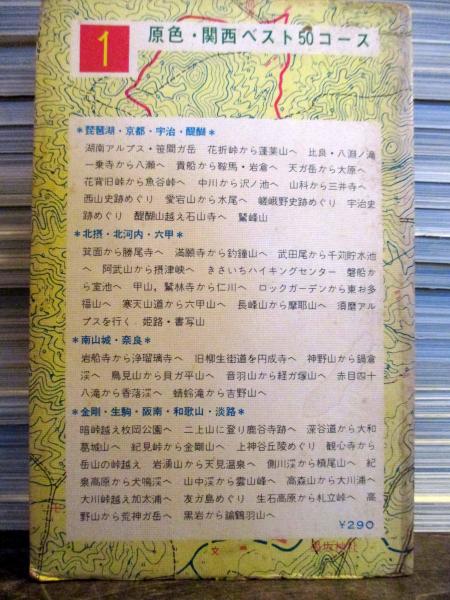 1
原色・関西ベスト50コース
*琵琶湖・京都・宇治・醍醐*
湖南アルプス・笹間ガ岳 花折峠から蓬莱山へ 比良・八淵ノ滝
一乗寺から八瀬へ 貴船から鞍馬・岩倉へ 天ガ岳から大原へ
花背旧峠から魚谷峠へ 中川から沢ノ池へ 山科から三井寺へ
西山史跡めぐり 愛宕山から水尾へ 嵯峨野史跡めぐり 宇治史
跡めぐり 醍醐山越え石山寺へ 鷲峰山
*北摂・北河内・六甲*
箕面から勝尾寺へ 満願寺から釣鐘山へ 武田尾から千苅貯水池
へ 阿武山から摂津峡へ きさいちハイキングセンター 磐船か
ら室池へ 甲山，鷲林寺から仁川へ ロックガーデンから東お多
福山へ 寒天山道から六甲山へ 長峰山から摩耶山へ 須磨アル
プスを行く 姫路・書写山
*南山城・奈良*
岩船寺から浄瑠璃寺へ 旧柳生街道を円成寺へ 神野山から鍋倉
渓へ 鳥見山から貝ガ平山へ 音羽山から経ガ塚山へ 赤目四十
八滝から香落渓へ 蜻蛉滝から吉野山へ
*金剛・生駒・阪南・和歌山・淡路*
暗峠越え枚岡公園へ 二上山に登り鹿谷寺跡へ 深谷道から大和
葛城山へ 紀見峠から金剛山へ 上神谷丘陵めぐり 観心寺から
岳山の峠越え 岩湧山から天見温泉へ 側川渓から槙尾山へ 紀
泉高原から犬鳴渓へ 山中渓から雲山峰へ 高森山から大川浦へ
大川峠越え加太浦へ 友が島めぐり 生石高原から札立峠へ 高
野山から荒神ガ岳へ 黒岩から諭鶴羽山へ
¥290
文